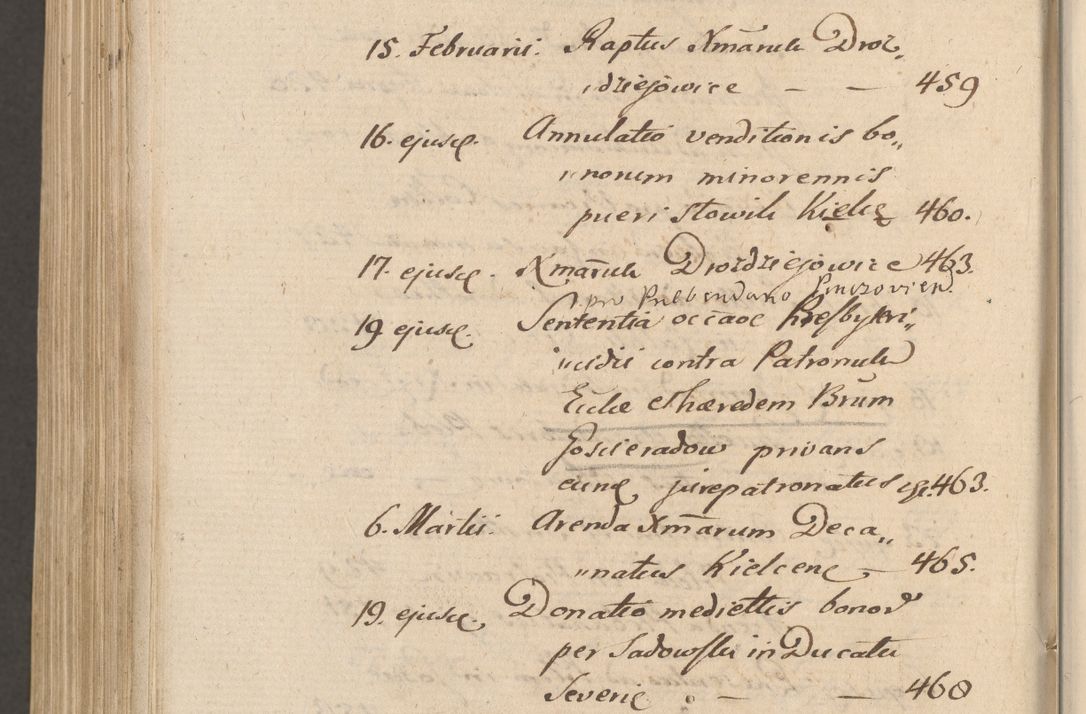 15. Februarii. Raptus Xmarum Droz„
„dziejowice — — 459
16. ejusd. Annulatio venditionis bo„
„norum minorennis
pueri Slowik Kielc 460.
17. ejusd. Xmarum Drozdziejowice 463.
pro Prebendario Pinczovien.
19. ejusd. Sententia occaõe Presbyteri„
„cidii contra Patronum
Eccłae et hæredem Brum
Goscieradow privans
eund jurepatronatus 463.
6. Martii. Arenda Xmarum Deca„
„natus Kielcens — 465.
19. ejusd. Donatio medietatis bonor
per Sadowski in Ducatu
Severie — — 468